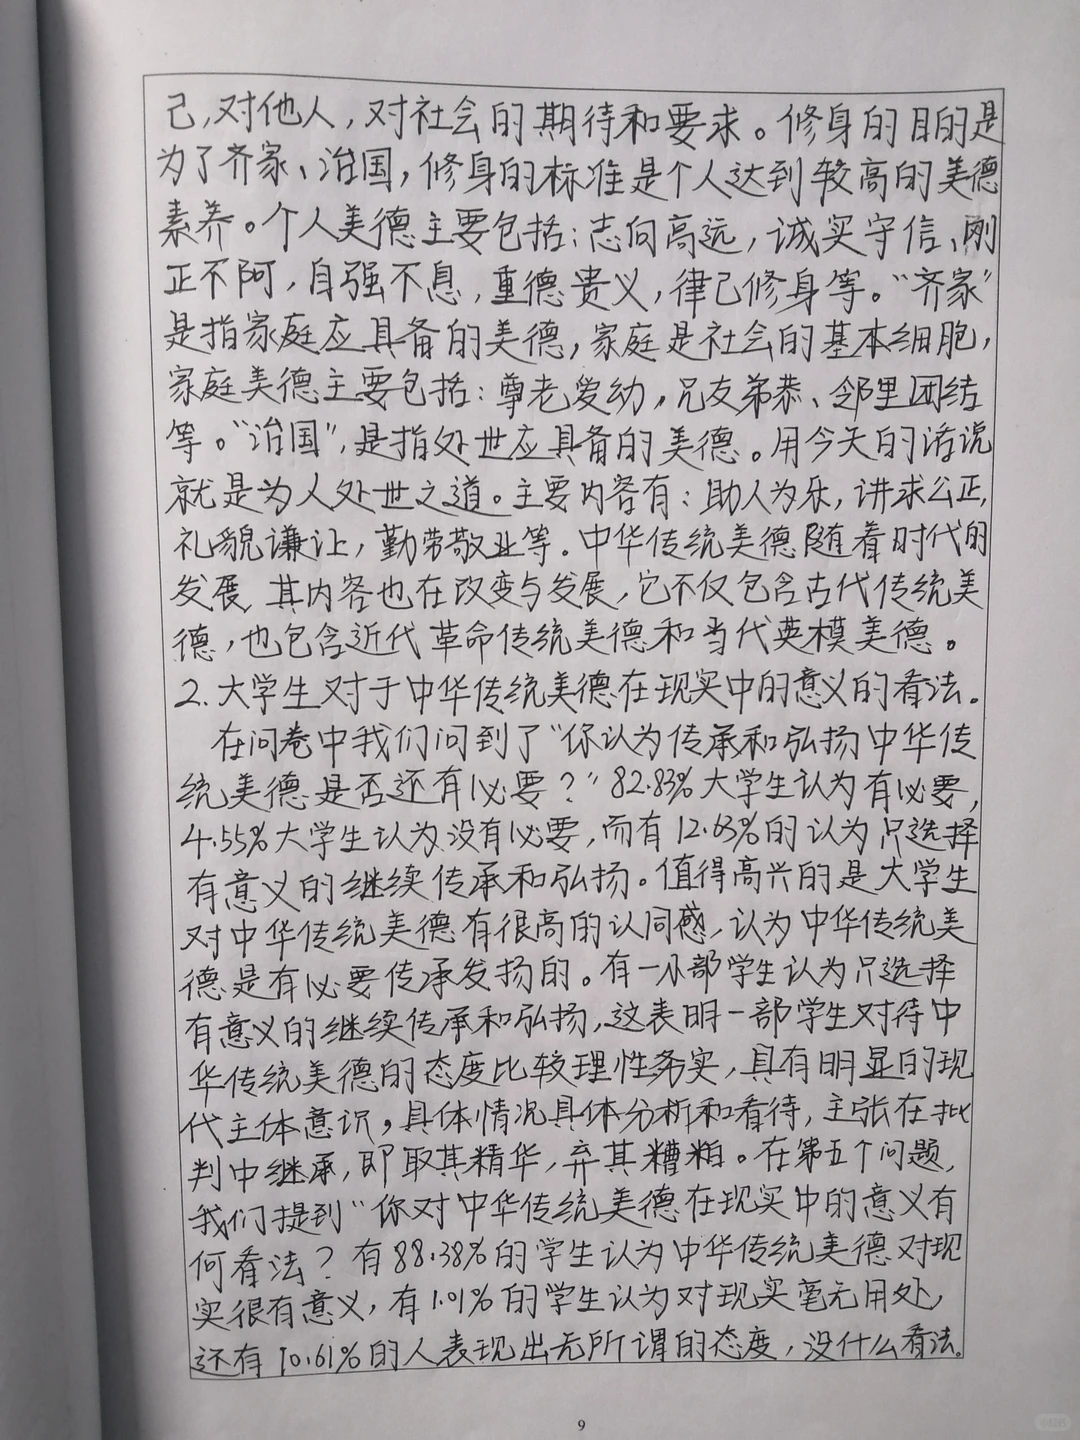 己,对他人,对社会的期待和要求。修身的目的是
为了齐家、治国,修身的标准是个人达到较高的美德
素养。个人美德主要包括:志向高远,诚实守信、刚
正不阿,自强不息,重德贵义,律己修身等。“齐家”
是指家庭应具备的美德,家庭是社会的基本细胞,
家庭美德主要包括:尊老爱幼,兄友弟恭、邻里团结
等。“治国”,是指处世应具备的美德。用今天的话说
就是为人处世之道。主要内容有:助人为乐,讲求公正,
礼貌谦让,勤劳敬业等.中华传统美德随着时代的
发展,其内容也在改变与发展,它不仅包含古代传统美
德,也包含近代革命传统美德和当代英模美德。
2.大学生对于中华传统美德在现实中的意义的看法.
在问卷中我们问到了“你认为传承和弘扬中华传
统美德是否还有必要?”82.83%大学生认为有必要,
4.55%大学生认为没有必要,而有12.63%的认为只选择
有意义的继续传承和弘扬。值得高兴的是大学生
对中华传统美德有很高的认同感,认为中华传统美
德是有必要传承发扬的。有一小部学生认为只选择
有意义的继续传承和弘扬,这表明一部学生对待中
华传统美德的态度比较理性务实,具有明显的现
代主体意识,具体情况具体分析和看待,主张在批
判中继承,即取其精华,弃其糟粕。在第五个问题,
我们提到“你对中华传统美德在现实中的意义有
何看法?有88.38%的学生认为中华传统美德对现
实很有意义,有1.01%的学生认为对现实毫无用处,
还有10.61%的人表现出无所谓的态度,没什么看法。
9